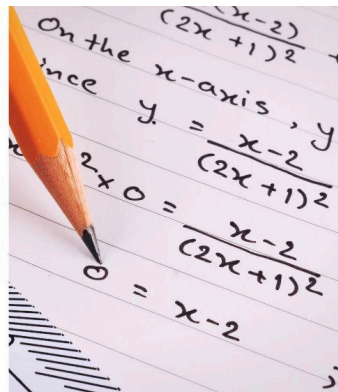 (x-2)
(2x +1)²
On the x-axis, y
ince y = x-2
(2x+1)²
² x 0 = x-2
(2x+1)²
0 = x-2